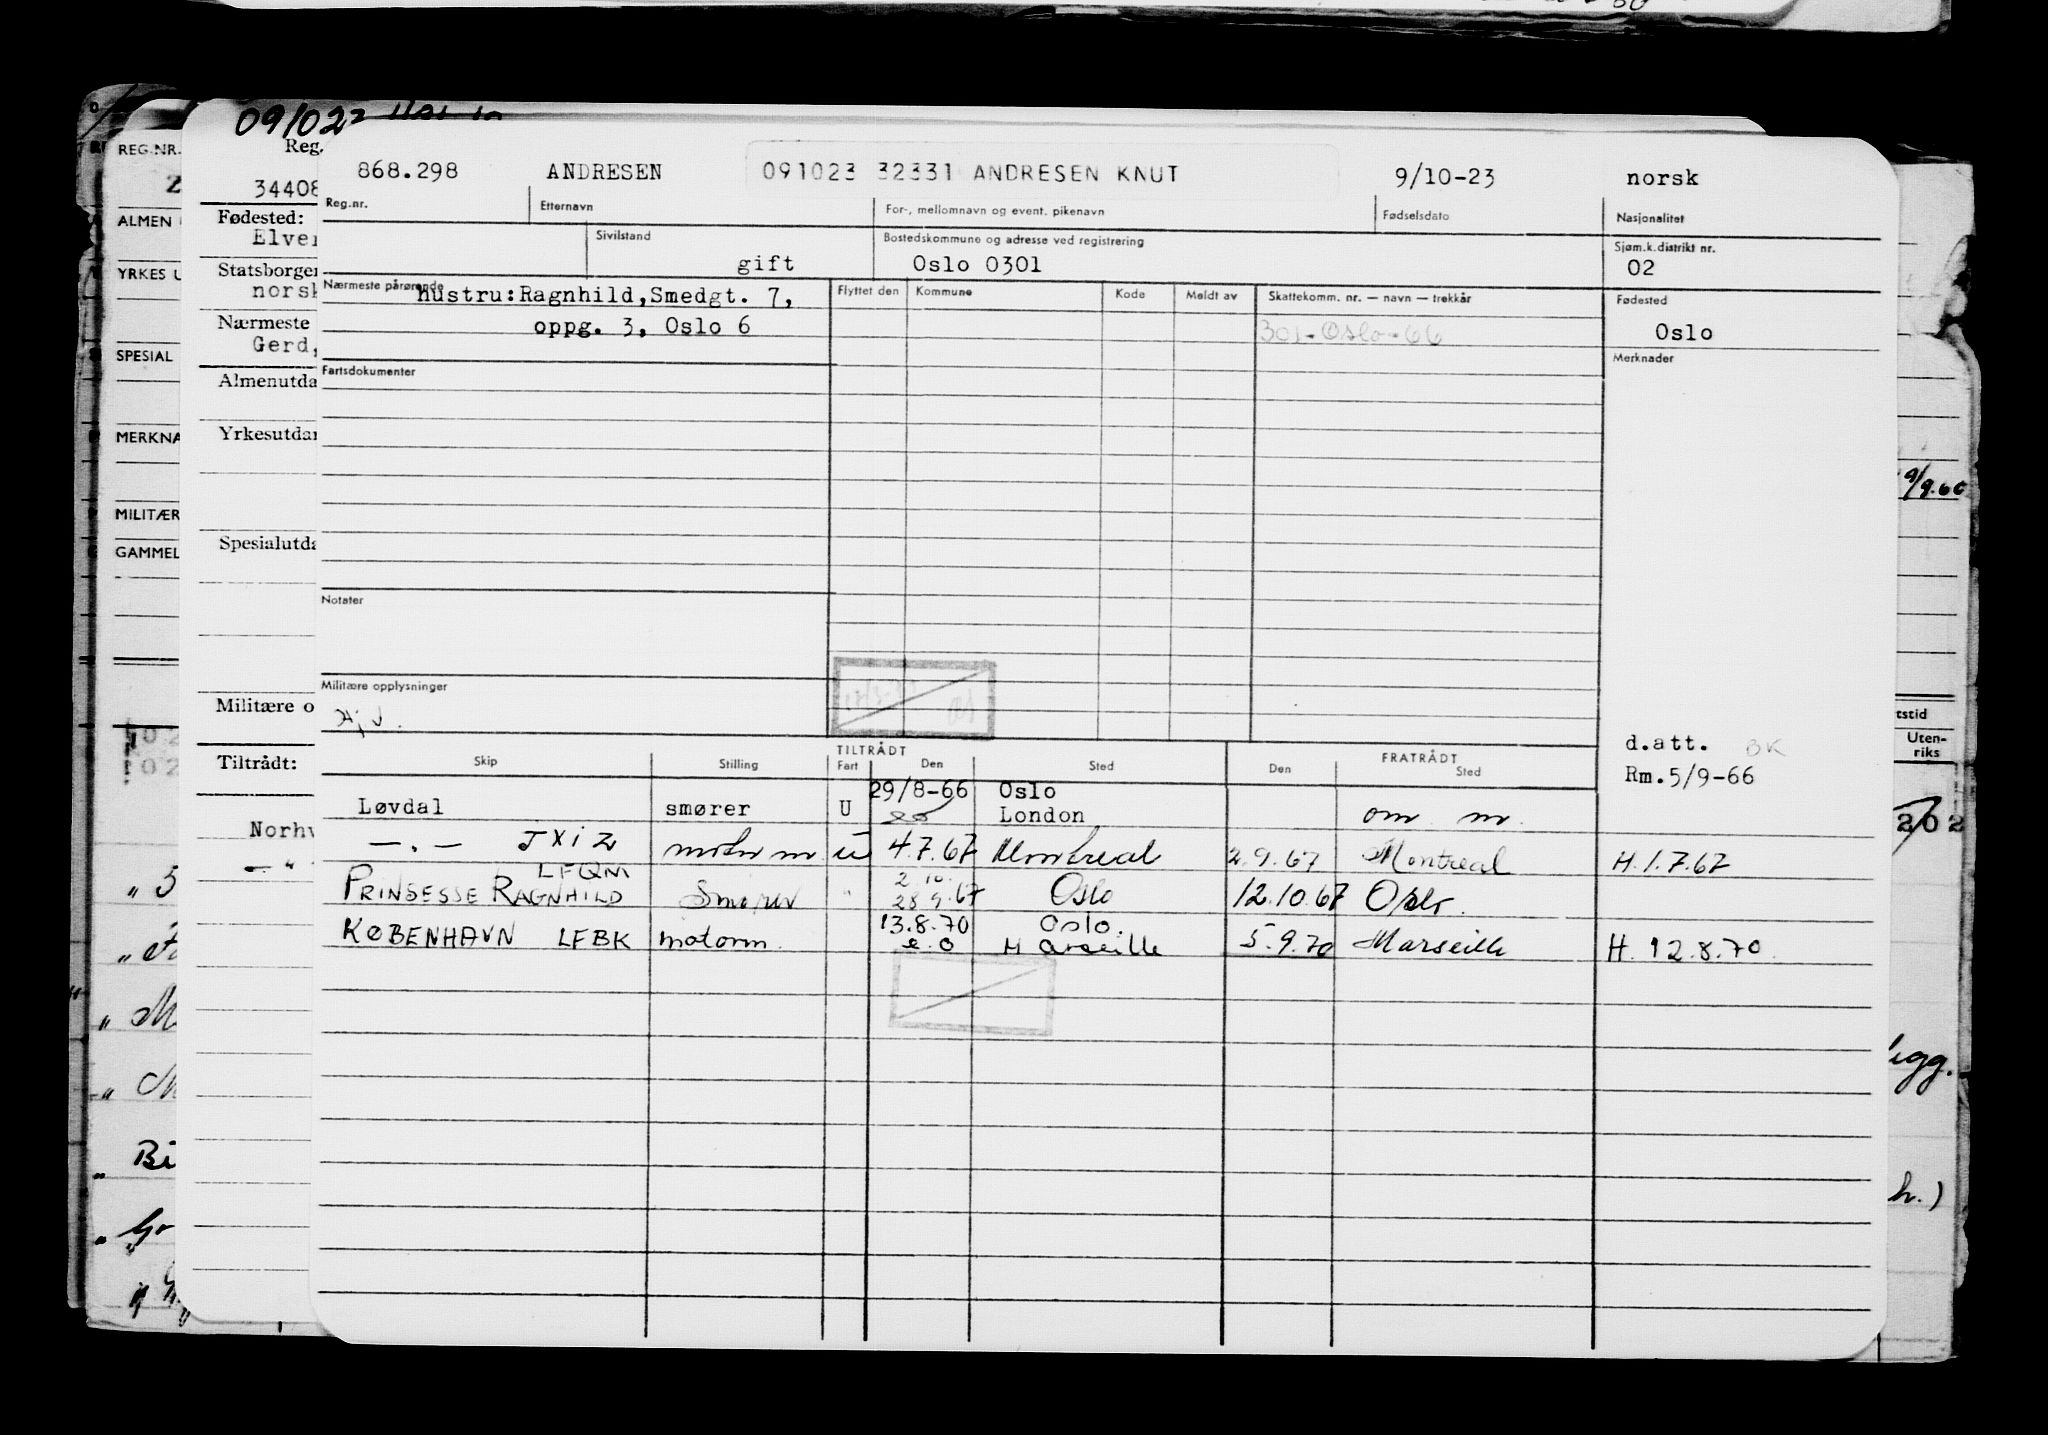 09/02
REG.NR.
ALMEN
YRKES
SPESIAL
MERKNA
MILITÆR
GAMMEL
Reg.
34408
Fødested:
Elver
Statsborger
norsk
Nærmeste
Gerd,
Almenutda
Yrkesutdan
Spesialutda
Militære o
Tiltrådt:
Norhv
868.298 ANDRESEN 091023 32331 ANDRESEN KNUT 9/10-23 norsk
Reg.nr. Etternavn For-, mellomnavn og event. pikenavn Fødselsdato Nasjonalitet
Sivilstand Bostedskommune og adresse ved registrering Sjøm.k.distrikt nr.
gift Oslo 0301 02
Nærmeste pårørende Flyttet den Kommune Kode Meldt av Skattekomm. nr. — navn — trekkår Fødested
hustru:Ragnhild,Smedgt. 7,
oppg. 3, Oslo 6 301-Oslo-66 Oslo
Fartsdokumenter Merknader
Notater
Militære opplysninger
d.att. BK
Rm.5/9-66
TILTRÅDT FRATRÅDT
Skip Stilling Fart Den Sted Den Sted
29/8-66 Oslo
Løvdal smører U London om m.
—„— JXIZ motorm. u 4.7.67 Montreal 2.9.67 Montreal H.1.7.67
LFQM 2 10.
PRINSESSE RAGNHILD Smører " 28 9.67 Oslo 12.10.67 Oslo.
13.8.70 Oslo.
KØBENHAVN LFBK motorm. Marseille 5.9.70 Marseille H. 12.8.70.
9/9.60
tstid
Uten-
riks
202
legg.
h.)